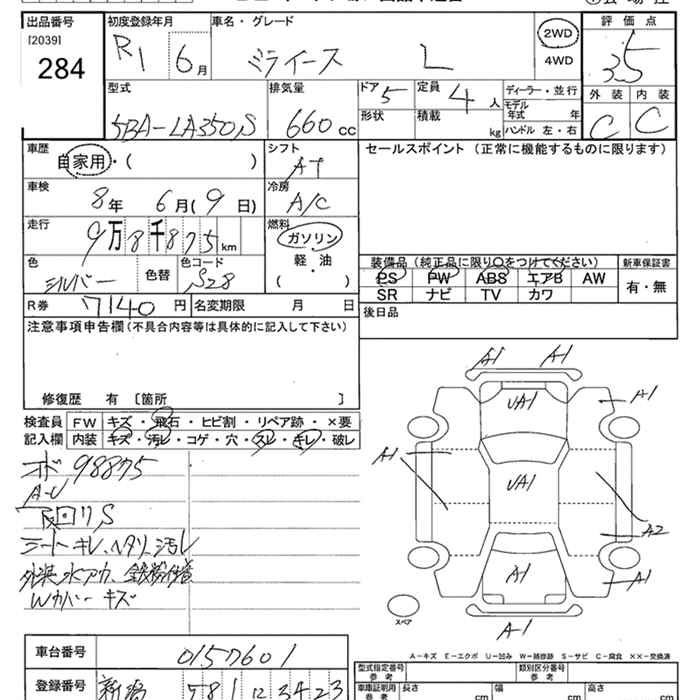 出品番号 初度登録年月 車名・グレード 評価点
[2039] 284 R1 6月 ミライース L 2WD 4WD 3.5
外装 内装
C C
型式 排気量 ドア 5 定員 4人 ディーラー・並行
5BA-LA350S 660cc 形状 積載 kg モデル年式 年
ハンドル 左・右
車歴 自家用・( ) シフト AT セールスポイント (正常に機能するものに限ります)
車検 8年 6月(9日) 冷房 A/C
走行 9万8千875km 燃料 ガソリン
軽・油
( )
色 シルバー 色替 色コード S28
装備品(純正品に限り○をつけてください) 新車保証書
PS PW ABS エアB AW 有・無
SR ナビ TV カワ
R券 7140円 名変期限 月 日 後日品
注意事項申告欄(不具合内容等は具体的に記入して下さい)
修復歴 有 [箇所 ]
検査員記入欄 FW キズ・飛石・ヒビ割・リペア跡・×要
内装 キズ・汚レ・コゲ・穴・スレ・キレ・破レ
オド 98875
A-U
下回りS
シートキレ、ヘタリ、汚レ
外装水アカ、鉄粉付着
Wカバーキズ
A1 A1
UA1 A1
A1 UA1
A2
A1 A1
A-1
スペア
A-キズ E-エクボ U-凹み W-補修跡 S-サビ C-腐食 XX-交換済
車台番号 0157601
型式指定番号 参考 類別区分番号 参考
登録番号 新潟 581 に 3423
車庫証明用 参考 長さ cm 幅 cm 高さ cm